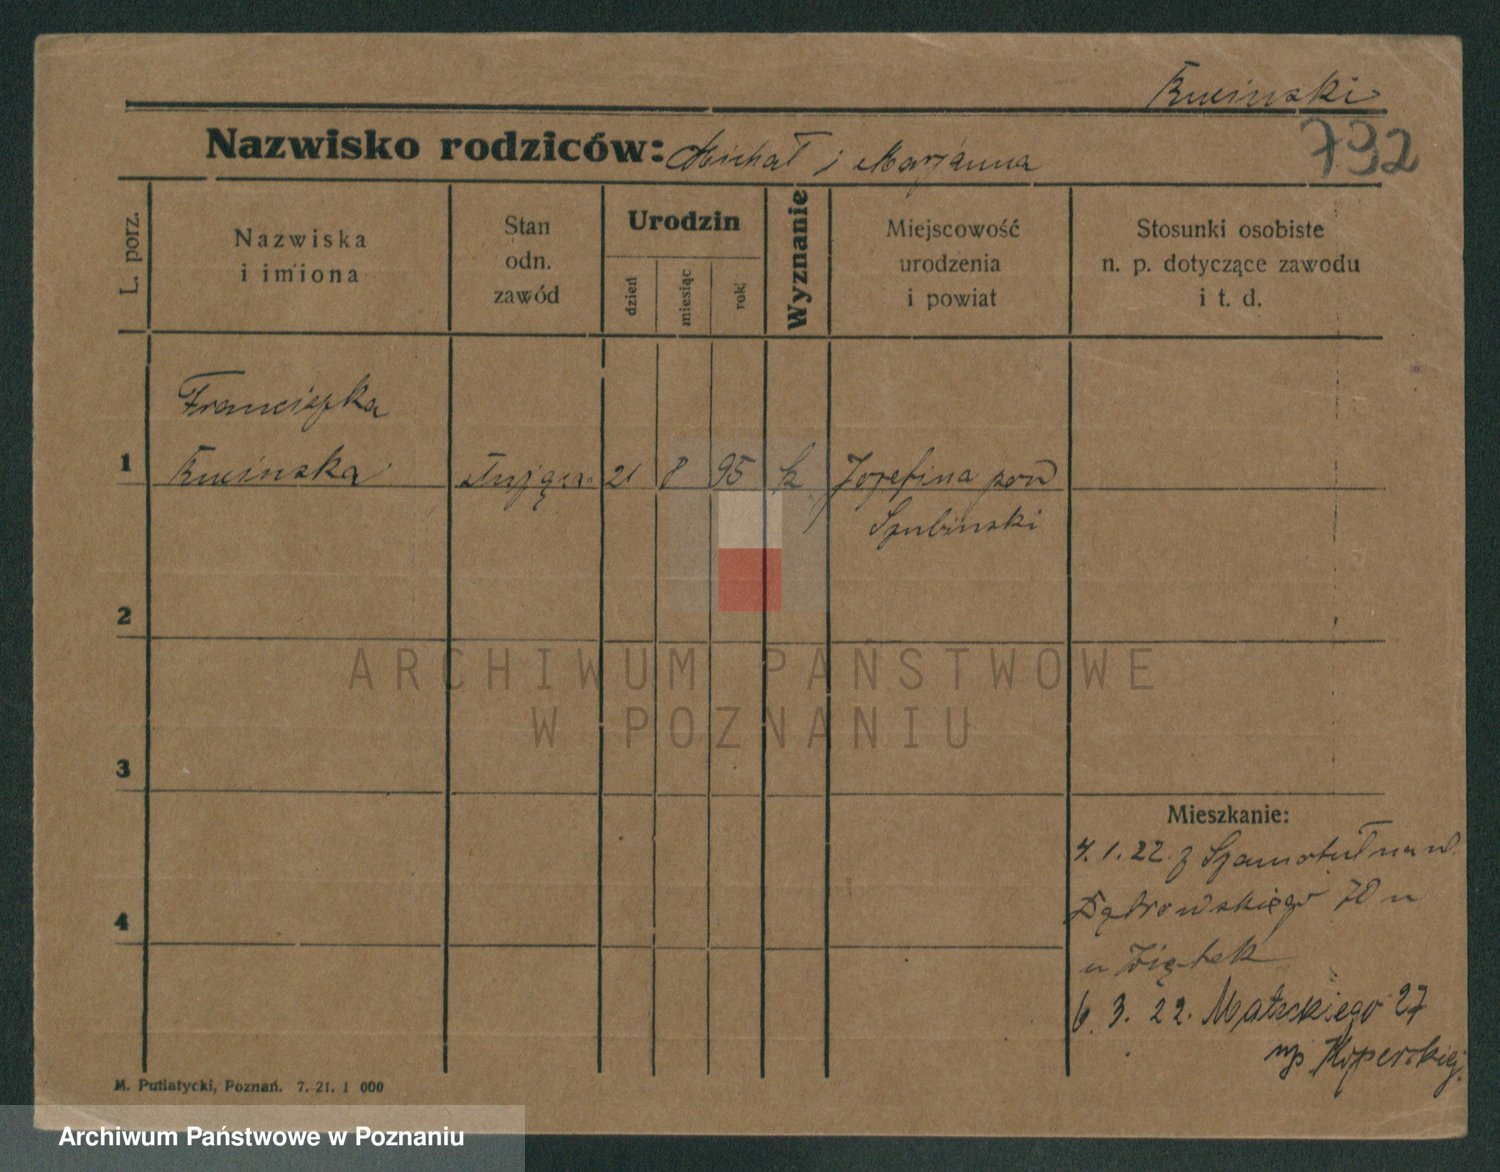 Rucinski
Nazwisko rodziców: Michał i Marjanna
792
L. porz.
Nazwiska
i imiona
Stan
odn.
zawód
Urodzin
dzień
miesiąc
rok
Wyznanie
Miejscowość
urodzenia
i powiat
Stosunki osobiste
n. p. dotyczące zawodu
i t. d.
Franciszka
1 Rucinska służąca 21 8 95 k Jozefina pow
Szubinski
2
3
4
ARCHIWUM PAŃSTWOWE
W POZNANIU
Mieszkanie:
4.1.22. z Szamotuł
Dąbrowskiego 70
u
6.3.22. Małeckiego 27
Koperskiej
M. Putiatycki, Poznań. 7.-21. 1 000
Archiwum Państwowe w Poznaniu